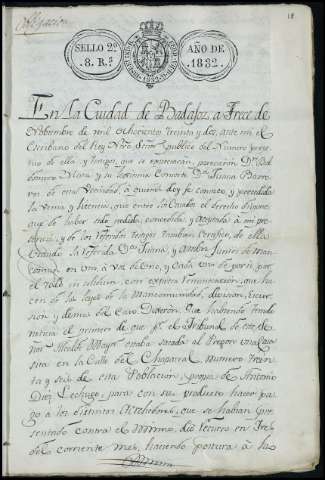 Obligacion
18
SELLO 2º
8. Rˢ
AÑO DE
1832.
En la Ciudad de Badajoz, a trece de
Noviembre de mil ochocientos treinta y dos, ante mi el
Escribano del Rey Nro. Señor publico del Numero
de ella, y testigos que se expresarán, parecieron Dⁿ
y su lexitima Consorte Dª Juana
de esta Vecindad, a quienes doy fe conozco, y precedida
la venia y licencia, que entre los Casados el derecho dispone
que de haber sido pedida, concedida, y aceptada a mi pre-
sencia, y de los referidos testigos tambien certifico, de ella
usando la referida Dª Juana, y ambos juntos de man-
comun en uno a voz de uno, y cada uno de por si por
el todo in solidum, con expresa renunciacion, que ha-
cen de las leyes de la Mancomunidad, division, Excur-
sion, y demas del caso Dixeron: Que habiendo
el primero de que pʳ el Tribunal de este Se-
ñor Alcalde Mayor estaba sacada al Pregon una Casa
sita en la Calle del Chaparral, numero trein-
ta y seis de esta Poblacion, propia de Antonio
Diez Lechuga, para con su producto hacer pa-
go a los distintos Acrehedores, que se habian pre-
sentado contra el mismo, dio recurso en tres
del corriente mes, haciendo postura a la